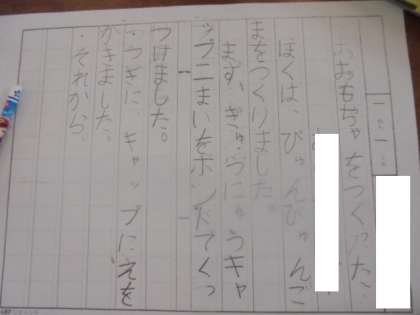 おもちゃをつくった
ぼくは、びゅんびゅんご
まをつくりました。
まず、ぎゅうにゅうキャ
ップ二まいをボンドでくっ
つけました。
・つぎに、キャップにえを
かきました。
・それから、